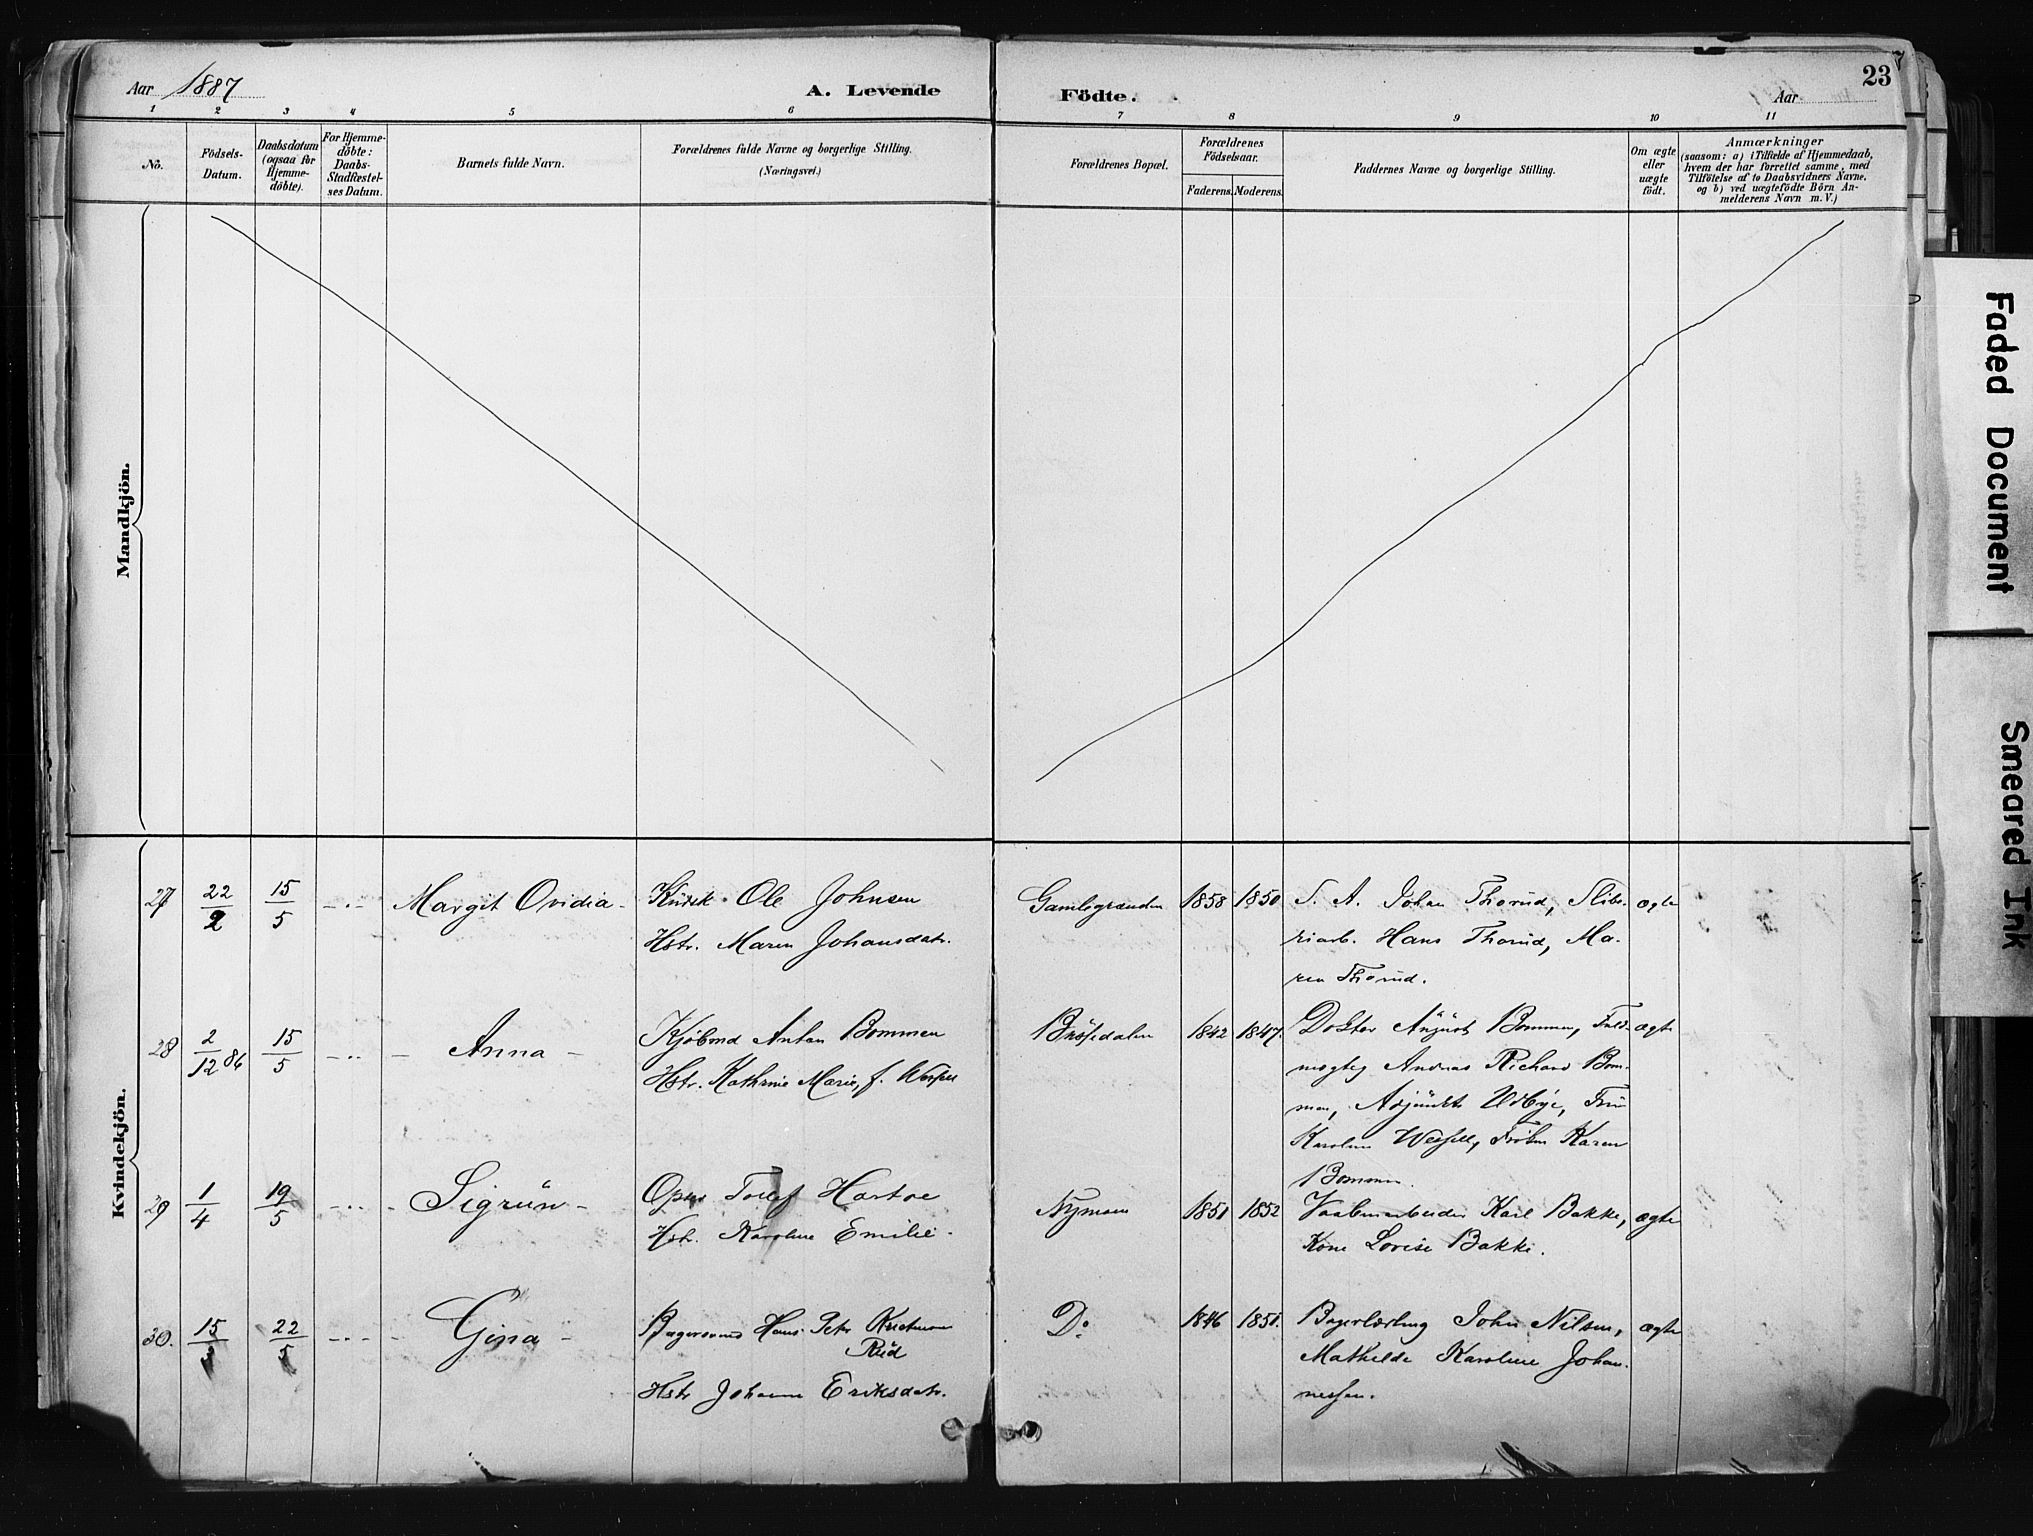 Aar 1887
A. Levende Födte.
Aar
23
1 2 3 4 5 6 7 8 9 10 11
No.
Födsels-
Datum.
Daabsdatum
(ogsaa for
Hjemme-
döbte).
For Hjemme-
döbte:
Daabs-
Stadfæstel-
ses Datum.
Barnets fulde Navn.
Forældrenes fulde Navne og borgerlige Stilling.
(Næringsvei.)
Forældrenes Bopæl.
Forældrenes
Födselsaar.
Faderens. Moderens.
Faddernes Navne og borgerlige Stilling.
Om ægte
eller
uægte
födt.
Anmærkninger
(saasom: a) i Tilfælde af Hjemmedaab,
hvem der har forrettet samme, med
Tilföielse af to Daabsvidners Navne,
og b) ved uægtefödte Börn An-
melderens Navn m.V.)
Mandkjön.
Kvindekjön.
27 22/2 15/5 Margit Ovidia
Ole Johnsen
Hstr. Maren Johansdatr.
Gamlegrænden 1858 1850
S. A. Johan Thorud, Slibe-
riarb. Hans Thorud, Ma-
ren Thorud.
ægte
28 2/12 86 15/5 Anna
Kjöbmd Anton Bommen
Hstr. Kathrine Marie, f.
1842 1847.
Doktor August Bommen, Fuld-
mægtig Andreas Richard Bom-
men, Adjunkt Udbye, Fru
Karoline Wessell, Fröken Karen
Bommen.
ægte
29 1/4 19/5 Sigrun
Hstr. Karoline Emilie
Nymoen 1851 1852
Vaabenarbeider Karl Bakke,
Kone Lovise Bakke.
ægte
30. 15 22/5 Gina
Bagersvend Hans Petr
Rud
Hstr Johanne Eriksdatr.
Do 1846 1851.
Bagerlærling John Nilsen,
Mathilde Karoline Johan-
nessen.
ægte
Faded Document
Smeared Ink